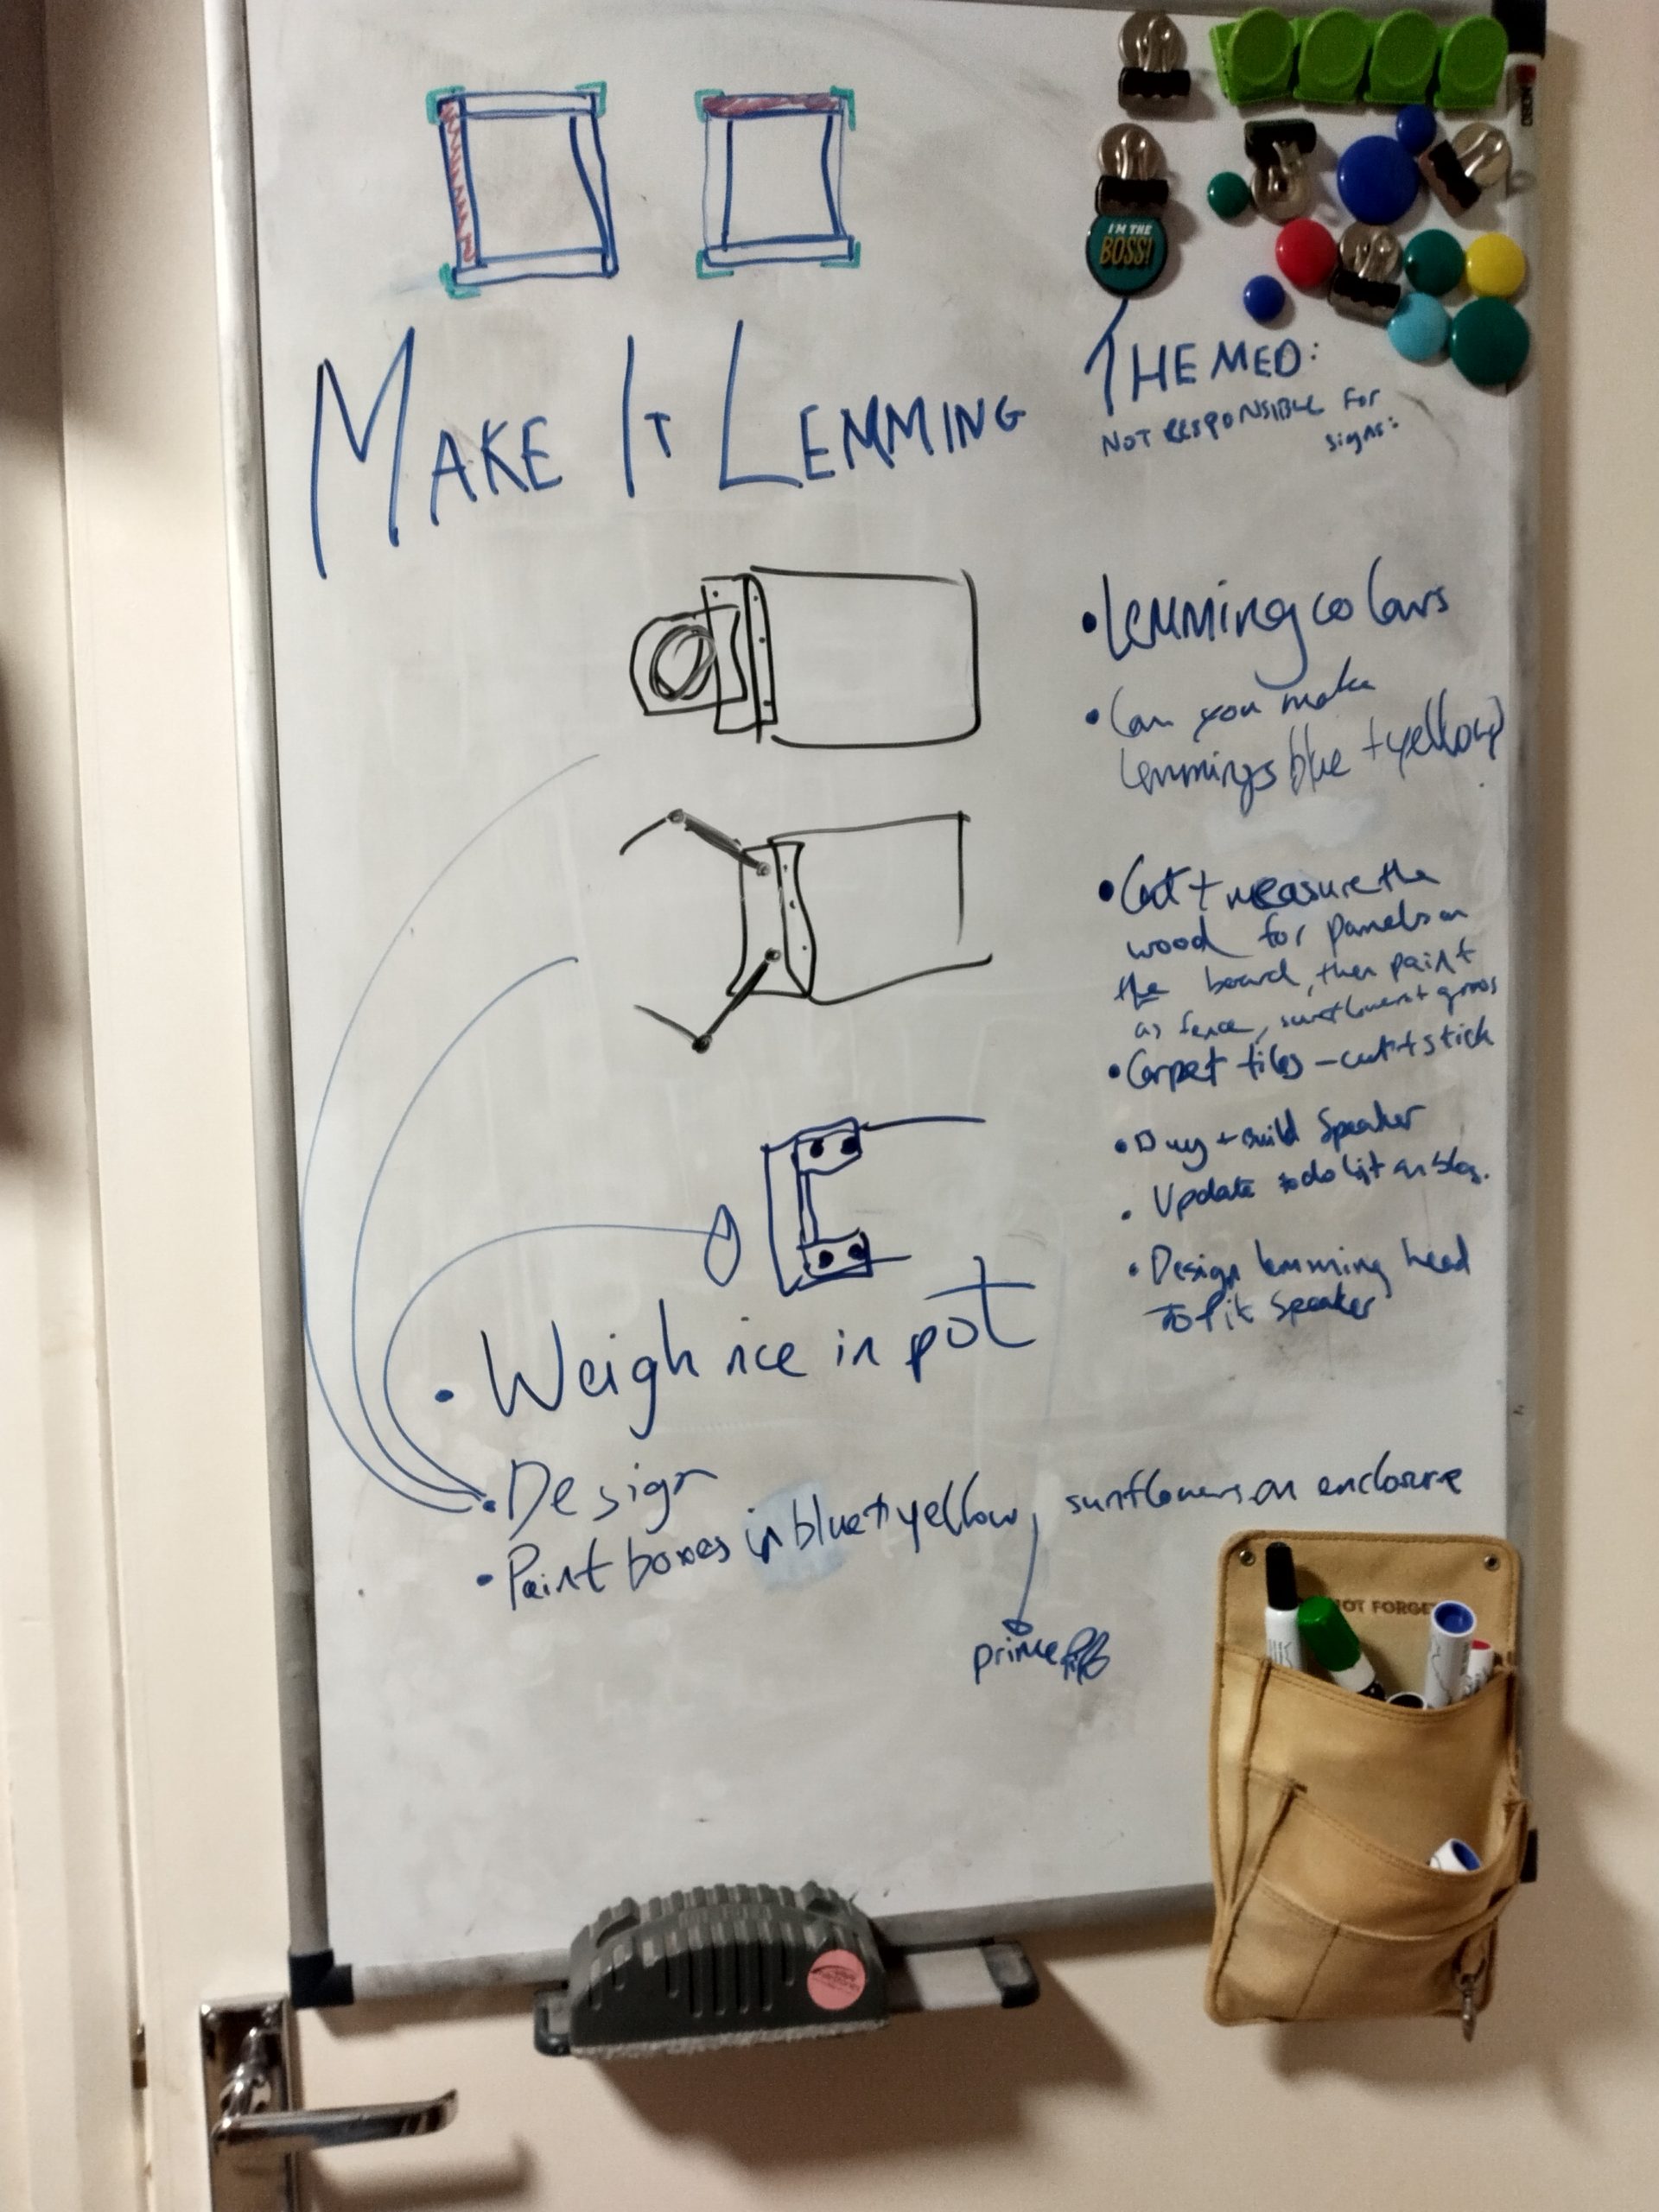 I'M THE
BOSS!
THEMED:
NOT RESPONSIBLE FOR
signs:
MAKE IT LEMMING
• Lemming colours
• Can you make
lemmings blue + yellow?
• Cut + measure the
wood for panels on
the board, then paint
as fence, sunflowers + grass
• Carpet tiles – cut + stick
• Buy + Build Speaker
• Update todo list on blog.
• Design lemming head
to fit Speaker
• Weigh rice in pot
• Design
• Paint boxes in blue + yellow, sunflowers on enclosure
prime
NOT FORGET